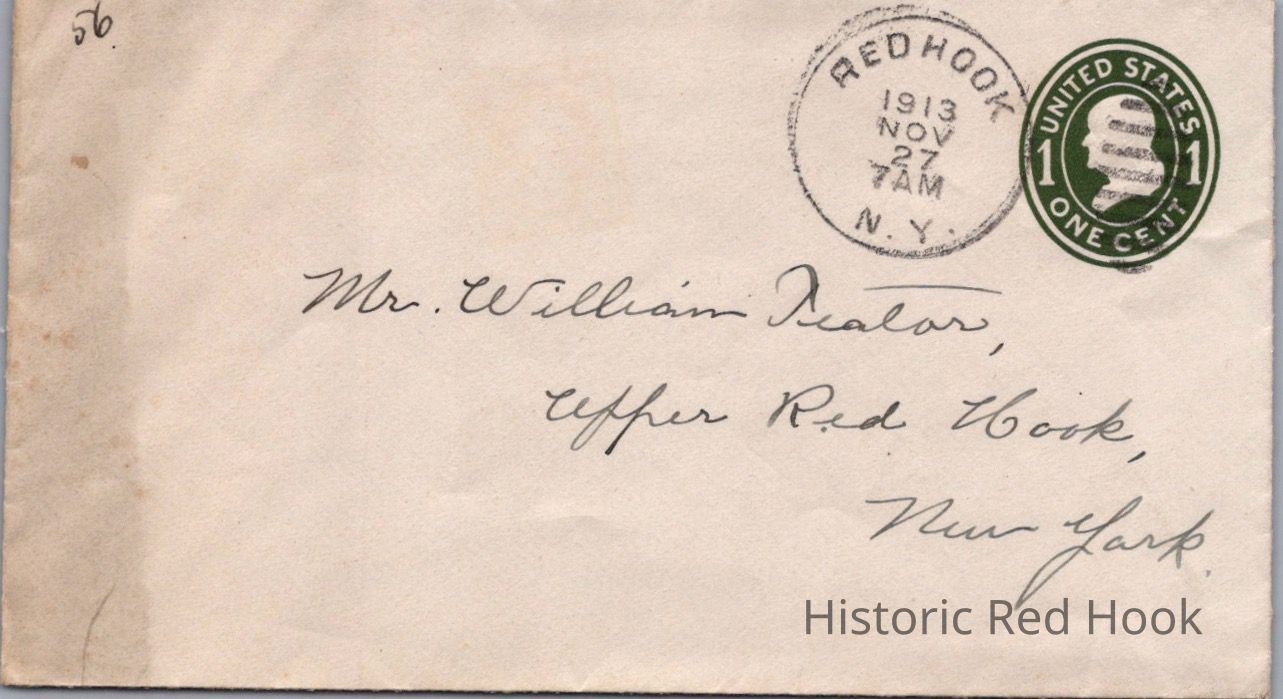 56.
RED HOOK
1913
NOV
27
7AM
N. Y.
UNITED STATES
1 1
ONE CENT
Mr. William Teator,
Upper Red Hook,
New York.
Historic Red Hook